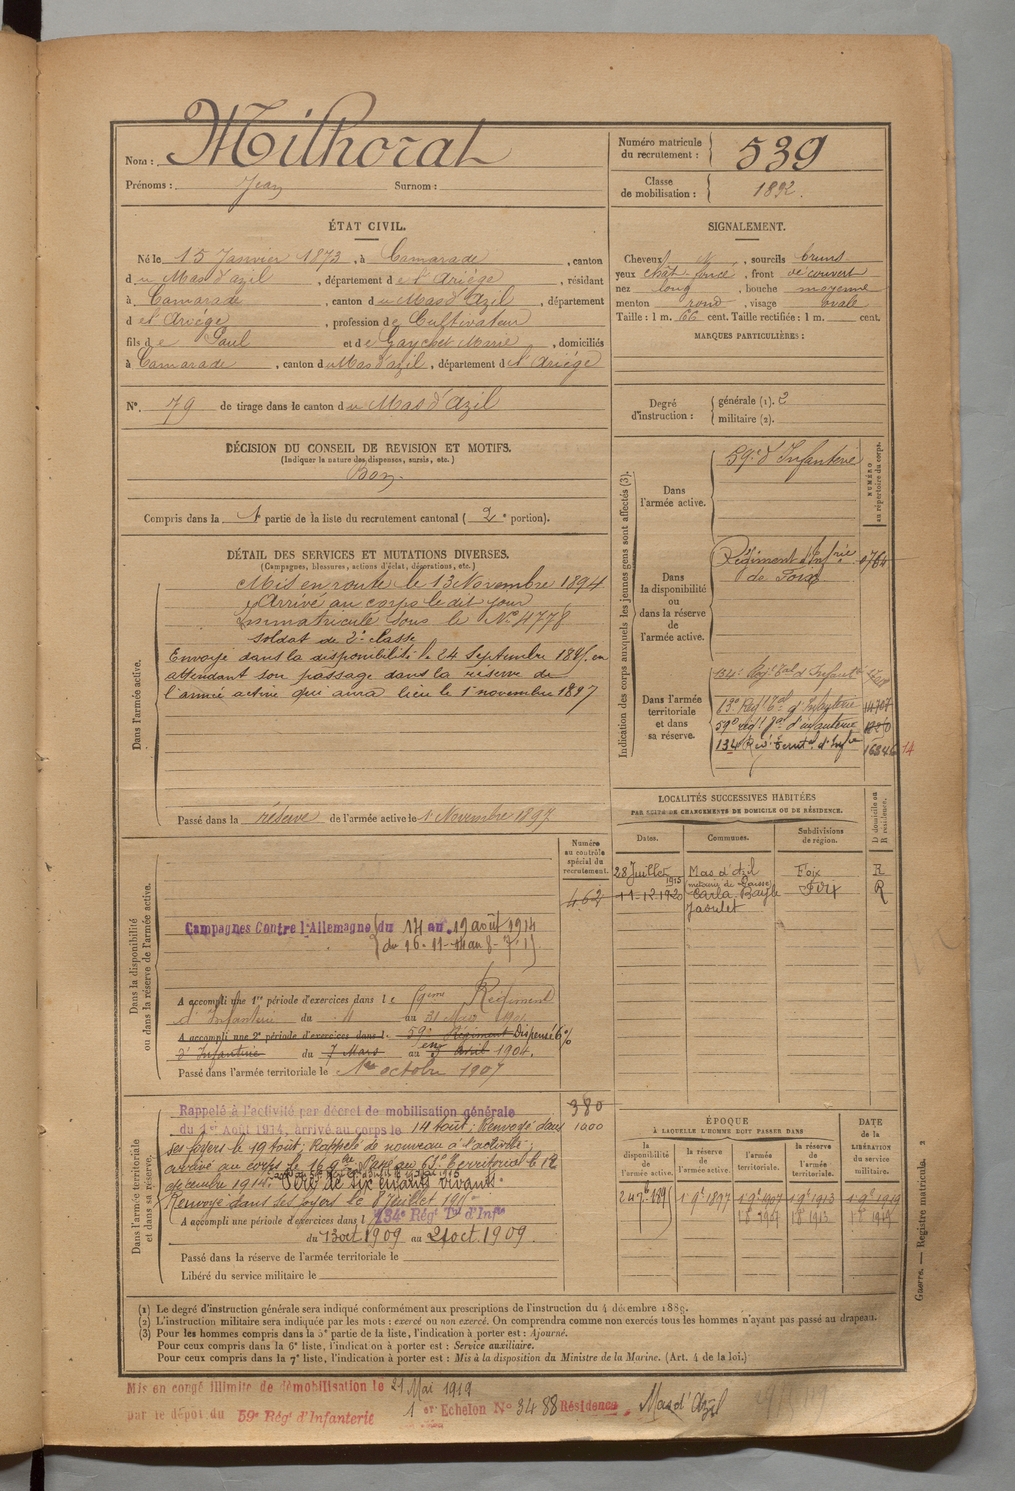 Nom : Milhorat
Prénoms : Jean Surnom :
Numéro matricule du recrutement : 539
Classe de mobilisation : 1892.
ÉTAT CIVIL.
Né le 15 Janvier 1873, à Camarade, canton
du Mas d'azil, département de l'Ariège, résidant
à Camarade, canton du Mas d'Azil, département
d el'Ariège, profession de Cultivateur
fils de Paul et de Gaychet Marie, domiciliés
à Camarade, canton du Mas d'azil, département de l'Ariège
N°. 79 de tirage dans le canton du Mas d'Azil
SIGNALEMENT.
Cheveux, sourcils bruns
yeux chât. foncé, front découvert
nez long, bouche moyenne
menton rond, visage ovale
Taille : 1 m. 66 cent. Taille rectifiée : 1 m. cent.
MARQUES PARTICULIÈRES :
Degré d'instruction : générale (1). 2
militaire (2).
DÉCISION DU CONSEIL DE REVISION ET MOTIFS.
(Indiquer la nature des dispenses, sursis, etc.)
Bon.
Compris dans la 1 partie de la liste du recrutement cantonal ( 2e portion).
DÉTAIL DES SERVICES ET MUTATIONS DIVERSES.
(Campagnes, blessures, actions d'éclat, décorations, etc.)
Dans l'armée active.
Mis en route le 13 Novembre 1894
Arrivé au corps le dit jour
Immatriculé sous le N° 4778
soldat de 2e classe
Envoyé dans la disponibilité le 24 Septembre 189, en
attendant son passage dans la réserve de
l'armée active qui aura lieu le 1er novembre 1897
Passé dans la réserve de l'armée active le 1 Novembre 1897
Indication des corps auxquels les jeunes gens sont affectés (3).
NUMÉRO au répertoire du corps.
Dans l'armée active.
59e d'Infanterie
Dans la disponibilité ou dans la réserve de l'armée active.
Régiment d'Infrie 0764
de Foix
Dans l'armée territoriale et dans sa réserve.
134e Régt Tal d'Infantie
13e Régt Tal d'Infanterie 14707
59e régt Tal d'infanterie
134 Rgt Territal d'Infie 16346 14
LOCALITÉS SUCCESSIVES HABITÉES
PAR SUITE DE CHANGEMENTS DE DOMICILE OU DE RÉSIDENCE.
Dates. Communes. Subdivisions de région. D domicile ou R résidence.
28 Juillet 1915 Mas d'Azil Foix R
11-12-1920 Carla Bayle Foix R
Dans la disponibilité ou dans la réserve de l'armée active.
Numéro au contrôle spécial du recrutement.
462
Campagnes Contre l'Allemagne du 14 au 19 août 1914
du 16-11-14 au 8-7-15
A accompli une 1re période d'exercices dans le 59eme Régiment
d'Infanterie du 4 au 31 Mars
A accompli une 2e période d'exercices dans l. 59e Régiment Dispensé 6%
d'Infanterie du 7 Mars au 3 Avril 1904.
Passé dans l'armée territoriale le 1er octobre 1907
Dans l'armée territoriale et dans sa réserve.
380
1000
Rappelé à l'activité par décret de mobilisation générale
du 1er Août 1914, arrivé au corps le 14 août ; Renvoyé dans
ses foyers le 19 Août ; Rappelé de nouveau à l'activité ;
arrivé au corps le 16 9bre Passé au Territorial le 12
décembre 1914. Père de six enfants vivants.
Renvoyé dans ses foyers le 8 Juillet 1915
A accompli une période d'exercices dans l 134e Régt Tal d'Infie
du 13 oct 1909 au 21 oct. 1909.
Passé dans la réserve de l'armée territoriale le
Libéré du service militaire le
ÉPOQUE
A LAQUELLE L'HOMME DOIT PASSER DANS
la disponibilité de l'armée active. la réserve de l'armée active. l'armée territoriale. la réserve de l'armée territoriale. DATE de la LIBÉRATION du service militaire.
24 7e 1895 1 9e 1897 1 9e 1907 1 9e 1913 1 9e 1919
1 8 1907 1 8 1913 1 8 1919
(1) Le degré d'instruction générale sera indiqué conformément aux prescriptions de l'instruction du 4 décembre 1889.
(2) L'instruction militaire sera indiquée par les mots : exercé ou non exercé. On comprendra comme non exercés tous les hommes n'ayant pas passé au drapeau.
(3) Pour les hommes compris dans la 5e partie de la liste, l'indication à porter est : Ajourné.
Pour ceux compris dans la 6e liste, l'indication à porter est : Service auxiliaire.
Pour ceux compris dans la 7e liste, l'indication à porter est : Mis à la disposition du Ministre de la Marine. (Art. 4 de la loi.)
Guerre. — Registre matricule. 2
Mis en congé illimité de démobilisation le 21 Mai 1919
par le dépôt du 59e Régt d'Infanterie 1er Echelon N° 3488 Résidence, Mas d'Azil